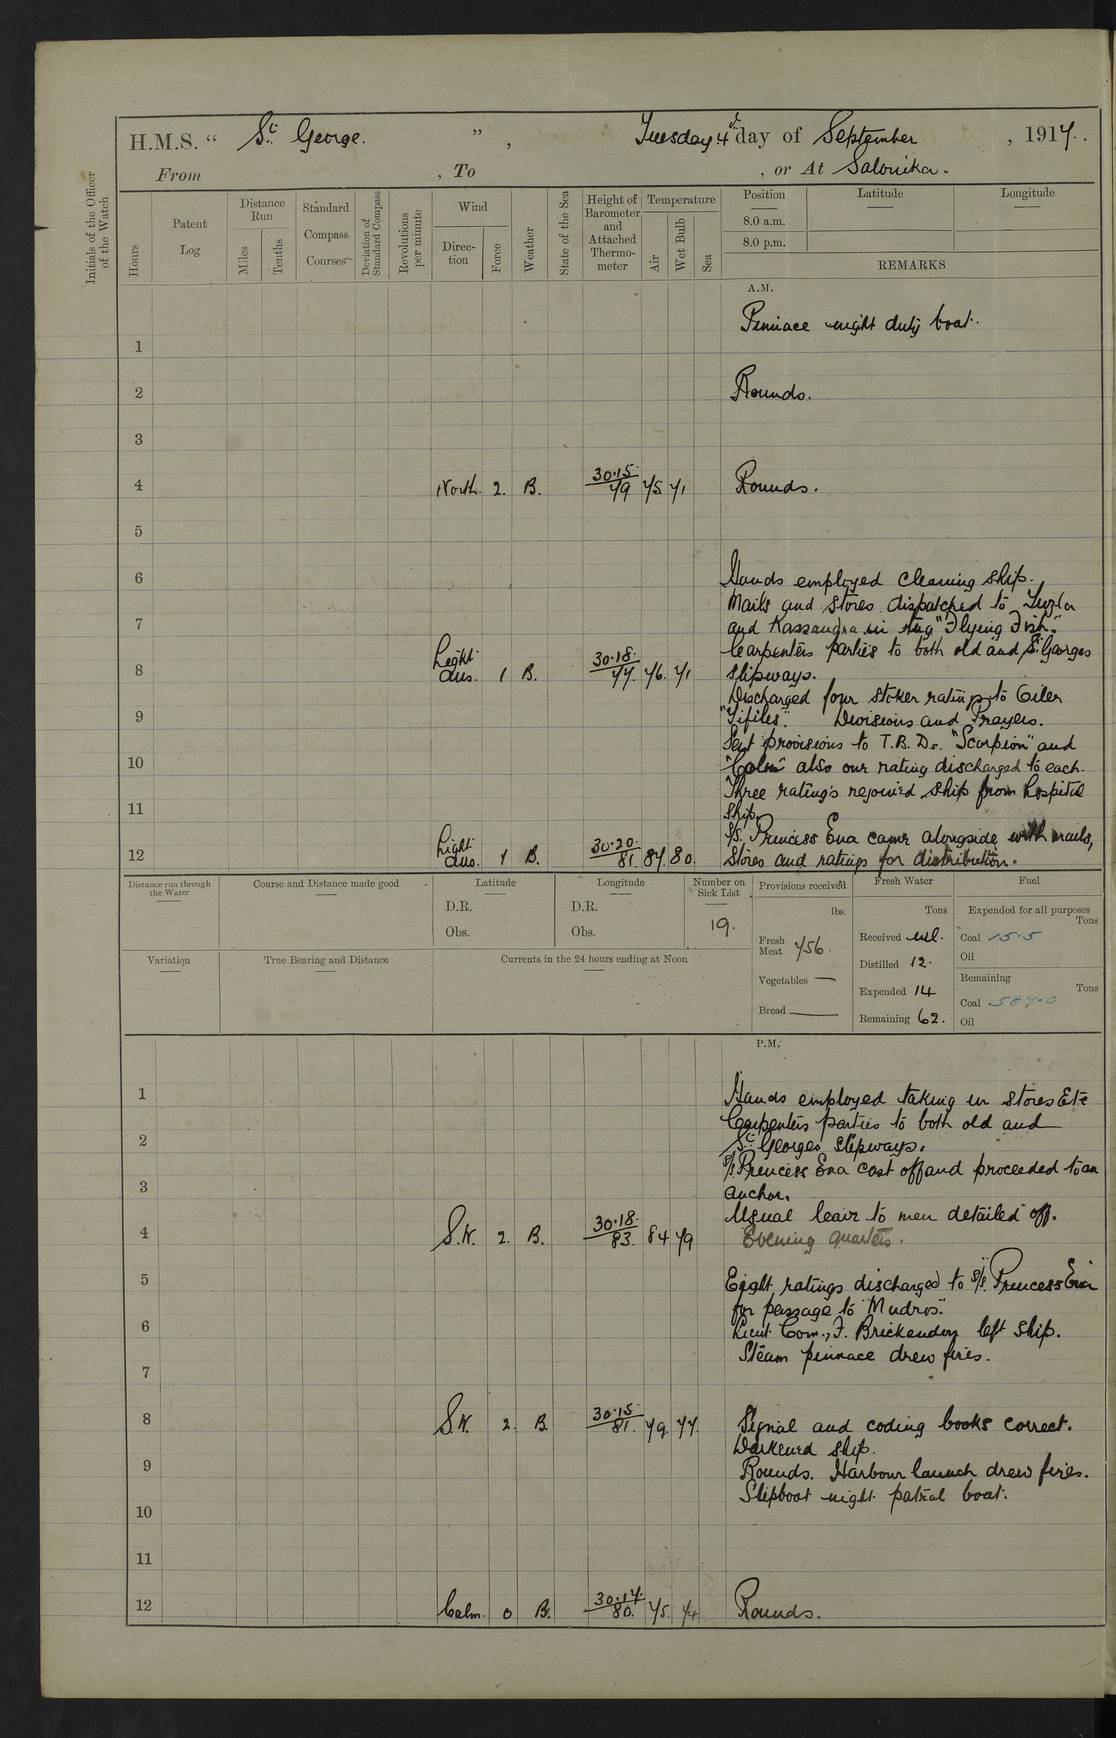 H.M.S. " St. George. " , Tuesday 4th day of September , 1917.
From , To , or At Salonika.
Initials of the Officer of the Watch
Hours
Patent Log
Distance Run
Miles
Tenths
Standard Compass Courses
Deviation of Standard Compass
Revolutions per minute
Wind
Direction
Force
Weather
State of the Sea
Height of Barometer and Attached Thermometer
Temperature
Air
Wet Bulb
Sea
Position
8.0 a.m.
8.0 p.m.
Latitude
Longitude
REMARKS
A.M.
Pinnace night duty boat.
1
2 Rounds.
3
4 North. 2. B. 30.15 / 79 75 71 Rounds.
5
6 Hands employed cleaning ship.
Mails and stores dispatched to Tuzla
7 and Kassandra in tug "Flying Fish."
Carpenters parties to both old and St. Georges
8 Light airs. 1 B. 30.18 / 77. 76. 71 slipways.
Discharged four stoker ratings to Oiler
9 "Tiflis". Divisions and Prayers.
Sent provisions to T.B.Ds. "Scorpion" and
10 "Colne" also one rating discharged to each.
Three ratings rejoined ship from hospital
11 ship.
S/S. Princess Ena came alongside with mails,
12 Light airs. 1 B. 30.20 / 81. 87. 80. stores and ratings for distribution.
Distance run through the Water
Course and Distance made good
Latitude
D.R.
Obs.
Longitude
D.R.
Obs.
Number on Sick List
19.
Provisions received
lbs.
Fresh Meat 756.
Vegetables —
Bread —
Fresh Water
Tons
Received nil.
Distilled 12.
Expended 14
Remaining 62.
Fuel
Expended for all purposes
Tons
Coal 15.5
Oil
Remaining
Tons
Coal 587.0
Oil
Variation
True Bearing and Distance
Currents in the 24 hours ending at Noon
P.M.
1 Hands employed taking in stores Etc
Carpenters parties to both old and
2 St. Georges slipways.
S/S. Princess Ena cast off and proceeded to an
3 anchor.
Usual leave to men detailed off.
4 S.W. 2. B. 30.18. / 83. 84 79 Evening quarters.
5 Eight ratings discharged to S/S. Princess Ena
for passage to "Mudros."
6 Lieut. Com., F. Brickenden left ship.
Steam pinnace drew fires.
7
8 S.W. 2. B. 30.15 / 81. 79. 77. Signal and coding books correct.
Darkened ship.
9 Rounds. Harbour launch drew fires.
Slipboat night patrol boat.
10
11
12 Calm. 0 B. 30.17. / 80. 75. 74 Rounds.